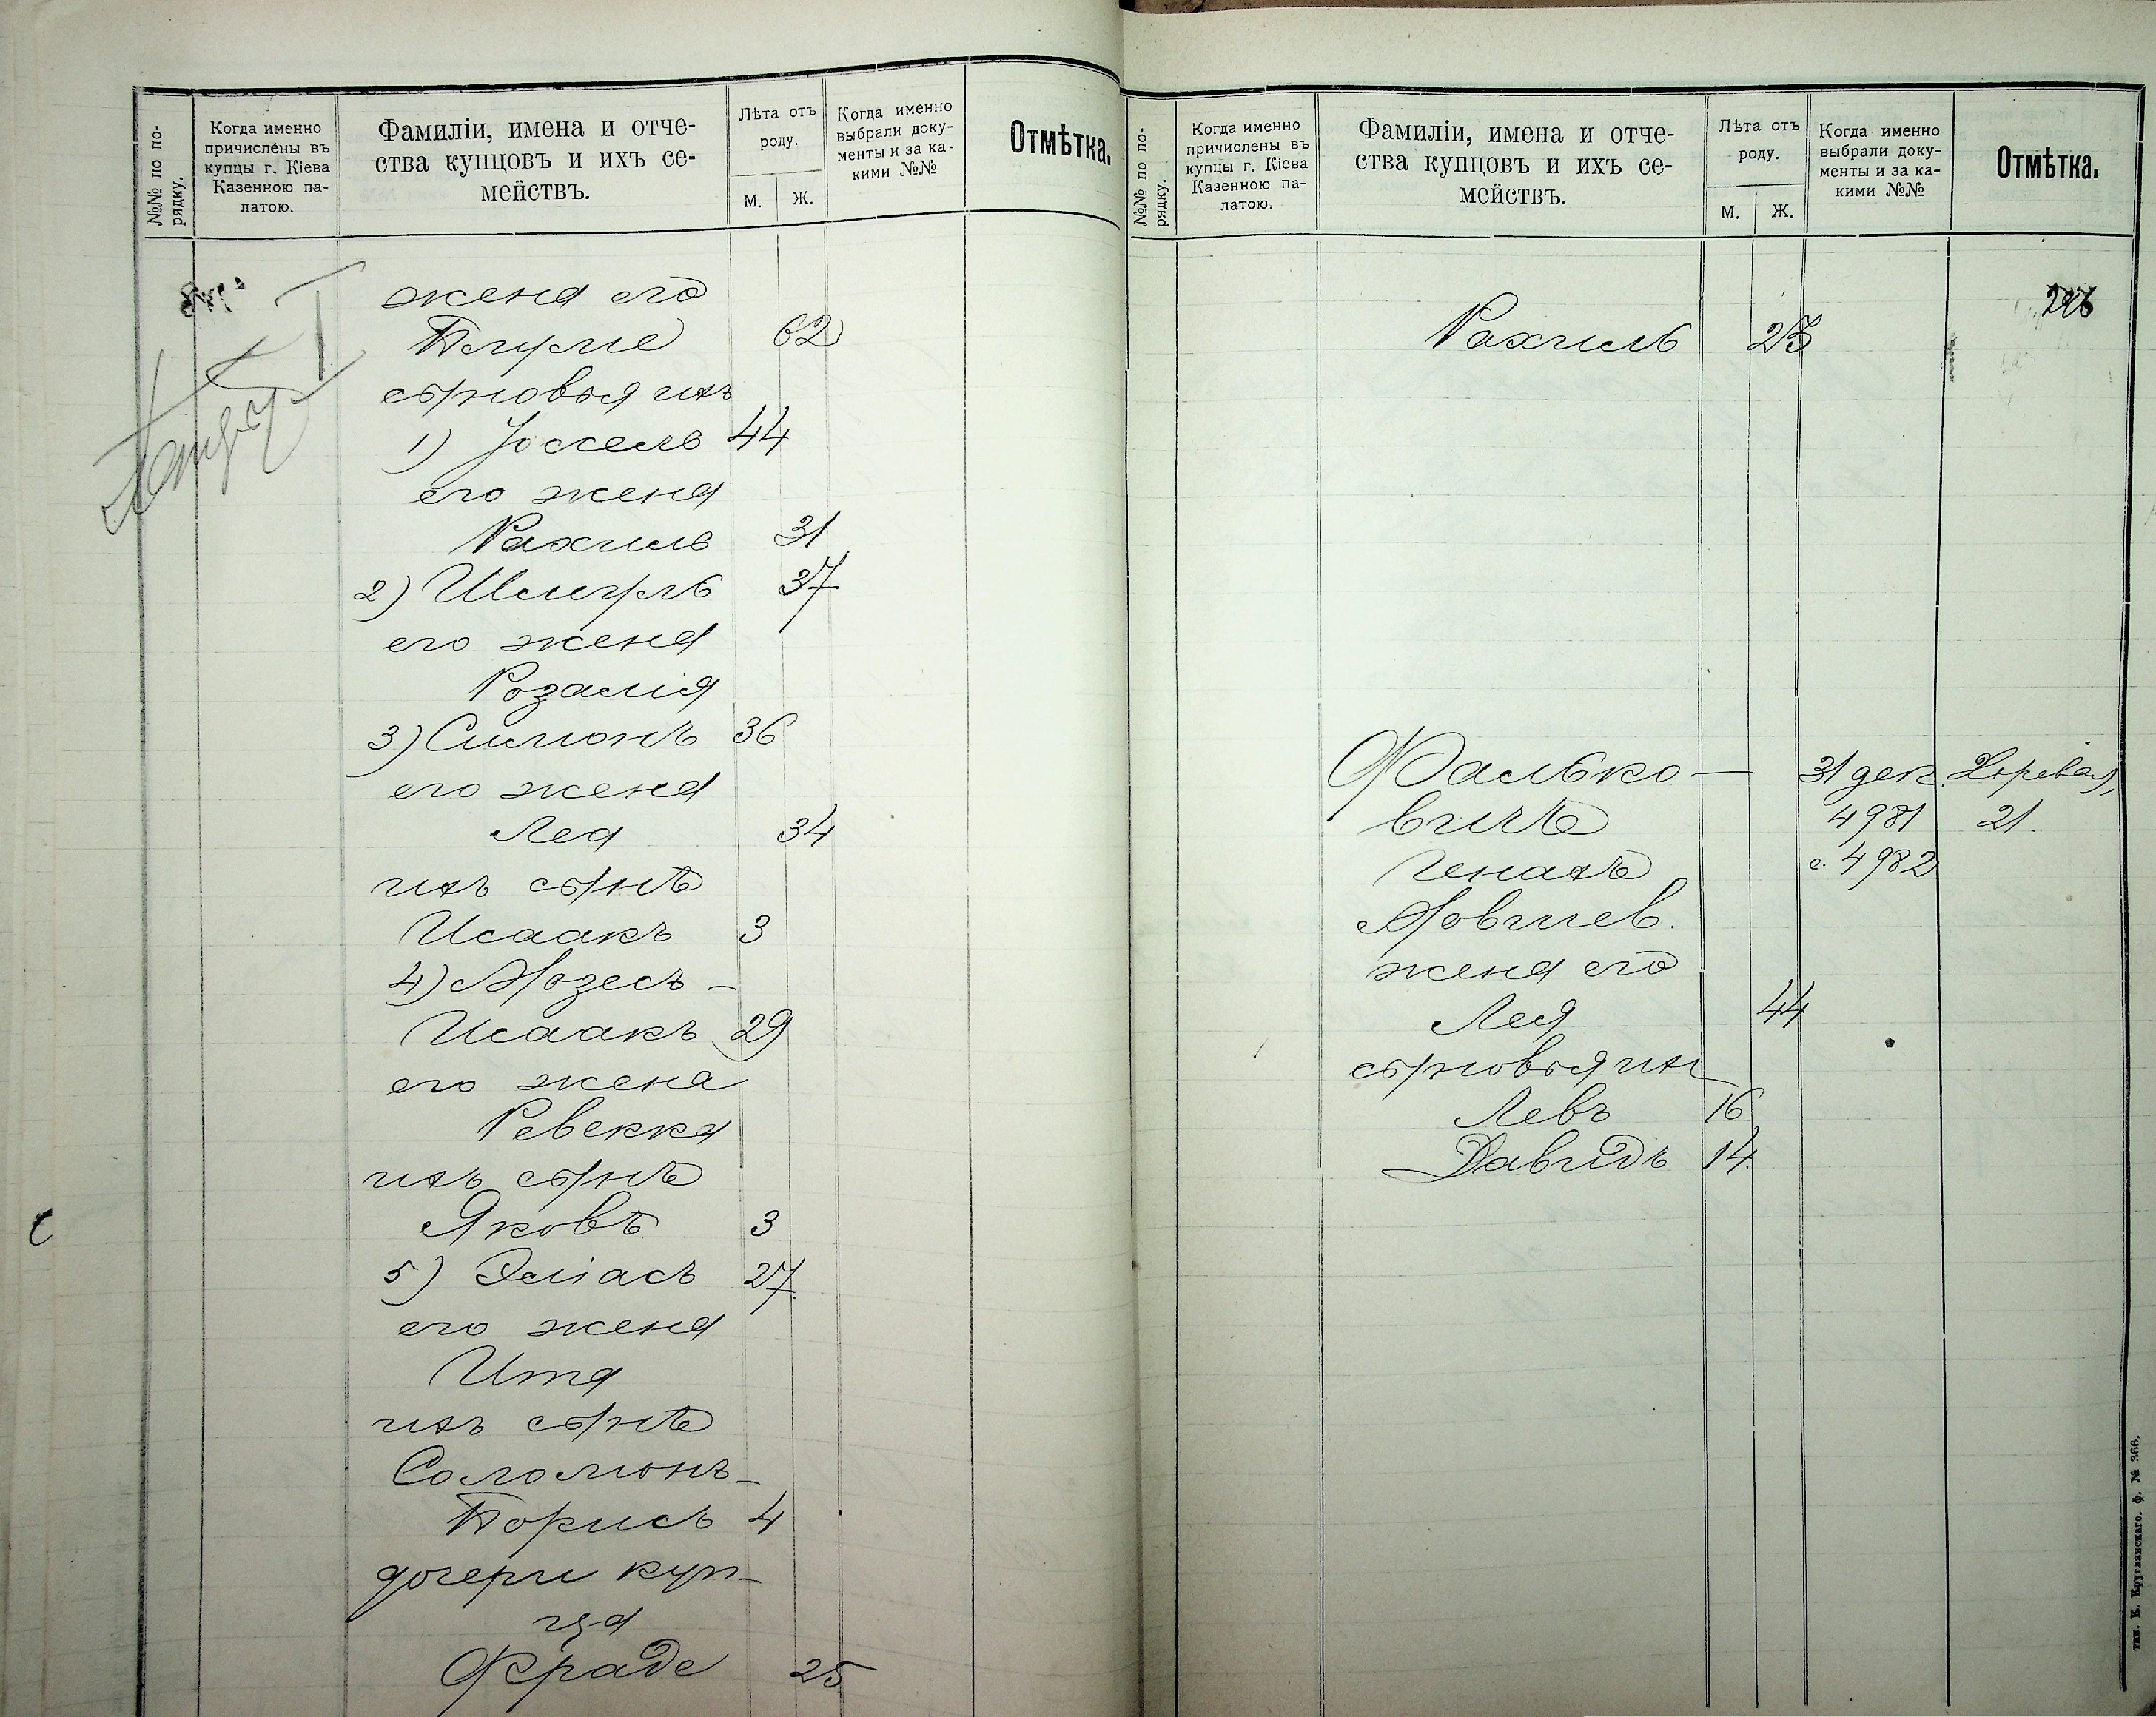 №№ по по-
рядку.
Когда именно
причислены въ
купцы г. Кіева
Казенною па-
латою.
Фамиліи, имена и отче-
ства купцовъ и ихъ се-
мействъ.
Лѣта отъ
роду.
М. Ж.
Когда именно
выбрали доку-
менты и за ка-
кими №№
Отмѣтка.
жена его
62
сыновья ихъ
1) Іоссель 44
его жена
Рахиль 31
2) Шмуль 37
его жена
Розалія
3) Симонъ 36
его жена
Лея 34
ихъ сынъ
Исаакъ 3
4) Мозесъ-
Исаакъ 29
его жена
Ревекка
ихъ сынъ
Яковъ 3
5) Эліасъ 27
его жена
Ита
ихъ сынъ
Соломонъ-
Борисъ 4
дочери куп-
ца
Фраде 25
№№ по по-
рядку.
Когда именно
причислены въ
купцы г. Кіева
Казенною па-
латою.
Фамиліи, имена и отче-
ства купцовъ и ихъ се-
мействъ.
Лѣта отъ
роду.
М. Ж.
Когда именно
выбрали доку-
менты и за ка-
кими №№
Отмѣтка.
Рахиль 23
Фалько- 31 дек.
вичъ 4981 21.
Генахъ с. 4982
Мовшев.
жена его
Лея 44
сыновья ихъ
Левъ 16
Давидъ 14.
тип. К. Круглянскаго. ф. № 366.